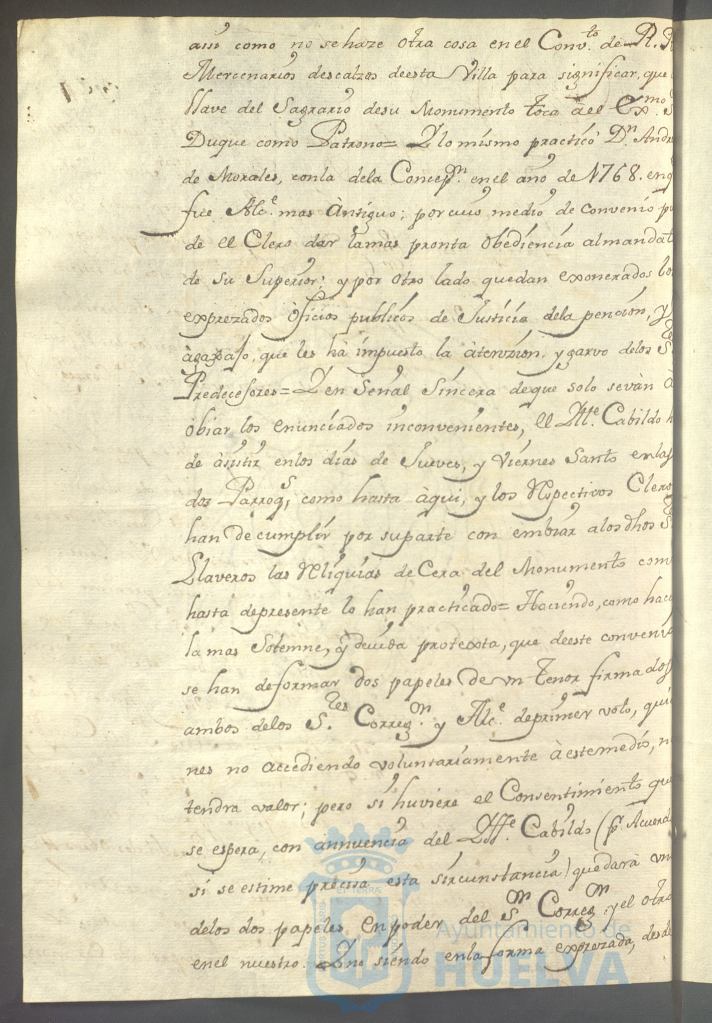 assi como no se haze otra cosa en el Conv.to de R. R
Mercenarios descalzos deesta Villa para significar, que
llave del Sagrario desu Monumento toca àel Ex.mo S
Duque como Patrono= Y lo mismo practicò D.n Andr
de Morales, conla dela Concep.n en el año de 1768. enq
fue Alc.e mas Antiguo; por cuio medio de convenio pu
de el Clero dar lamas pronta obediencia almandat
de su Superior; y por otro lado quedan exonerados lo
expresados Oficios publicos de Justicia dela pencion, y
àgassajo, que les hà impuesto la àtenzion, y garvo delos S.res
Predecessores= Y en Señal Sincera deque solo se và à
obiar los enunciados inconvenientes, el Ill.e Cabildo h
de àsistir enlos dias de Jueves, y Viernes Santo enlas
dos Parroq.s, como hasta àqui, y los Respectivos Clero
han de cumplir por suparte con embiar alos dhos S.res
Llaveros las Reliquias de Cera del Monumento com
hasta depresente lo han practicado= Haciendo, como hace
la mas Solemne, y devida protexta, que deeste conveni
se han deformar dos papeles de vn Tenor firmados
ambos delos S.res Correg.or y Alc.e deprimer voto, qui
nes no accediendo voluntariamente à este medio, n
tendra valor; pero si huviere el Consentimiento que
se espera, con annuencia del Ill.e Cabildo (p.r Acuerdo
si se estime precisa esta sircunstancia) quedarà vn
delos dos papeles en poder del S.or Correg.or y el otro
en el nuestro. Que siendo enla forma expresada, desde
Ayuntamiento de
HUELVA